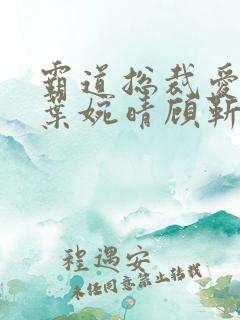 霸道总裁爱
叶婉晴顾靳
程遇安
未经同意禁止转载